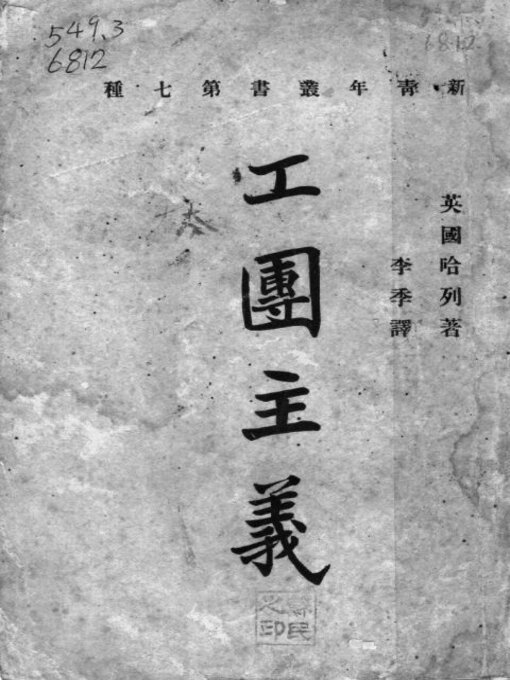 549.3
6812
6812
新青年叢書第七種
英國哈列著
李季譯
工團主義
民之印